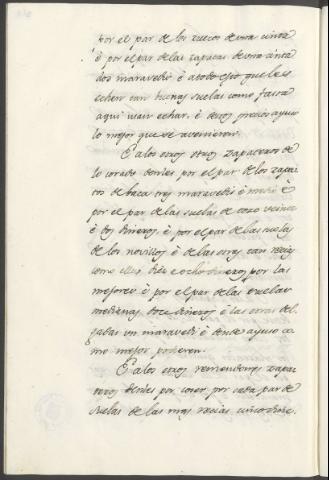 por el par de los zuecos de vna cinta
è por el par de las zapatas de vna cinta
dos maravedis è a todo esto que les
echen tan buenas suelas como fasta
aqui usan echar. è destos precios ayuso
lo mejor que se avinieren.
E a los otros otros zapateros de
lo corado denles por el par de los zapa-
tos de baca tres maravedis è medio è
por el par de las suelas de toro veinte
è dos dineros è por el par de las suelas
de los novillos è de las otras tan recias
como ellas diez e ocho dineros por las
mejores è por el par de las suelas
medianas doce dineros è las otras del-
gadas vn maravedi è dende ayuso co
mo mejor pudieren.
E a los otros remendones zapa-
teros denles por coser por cada par de
suelas de las mas recias cinco dine-